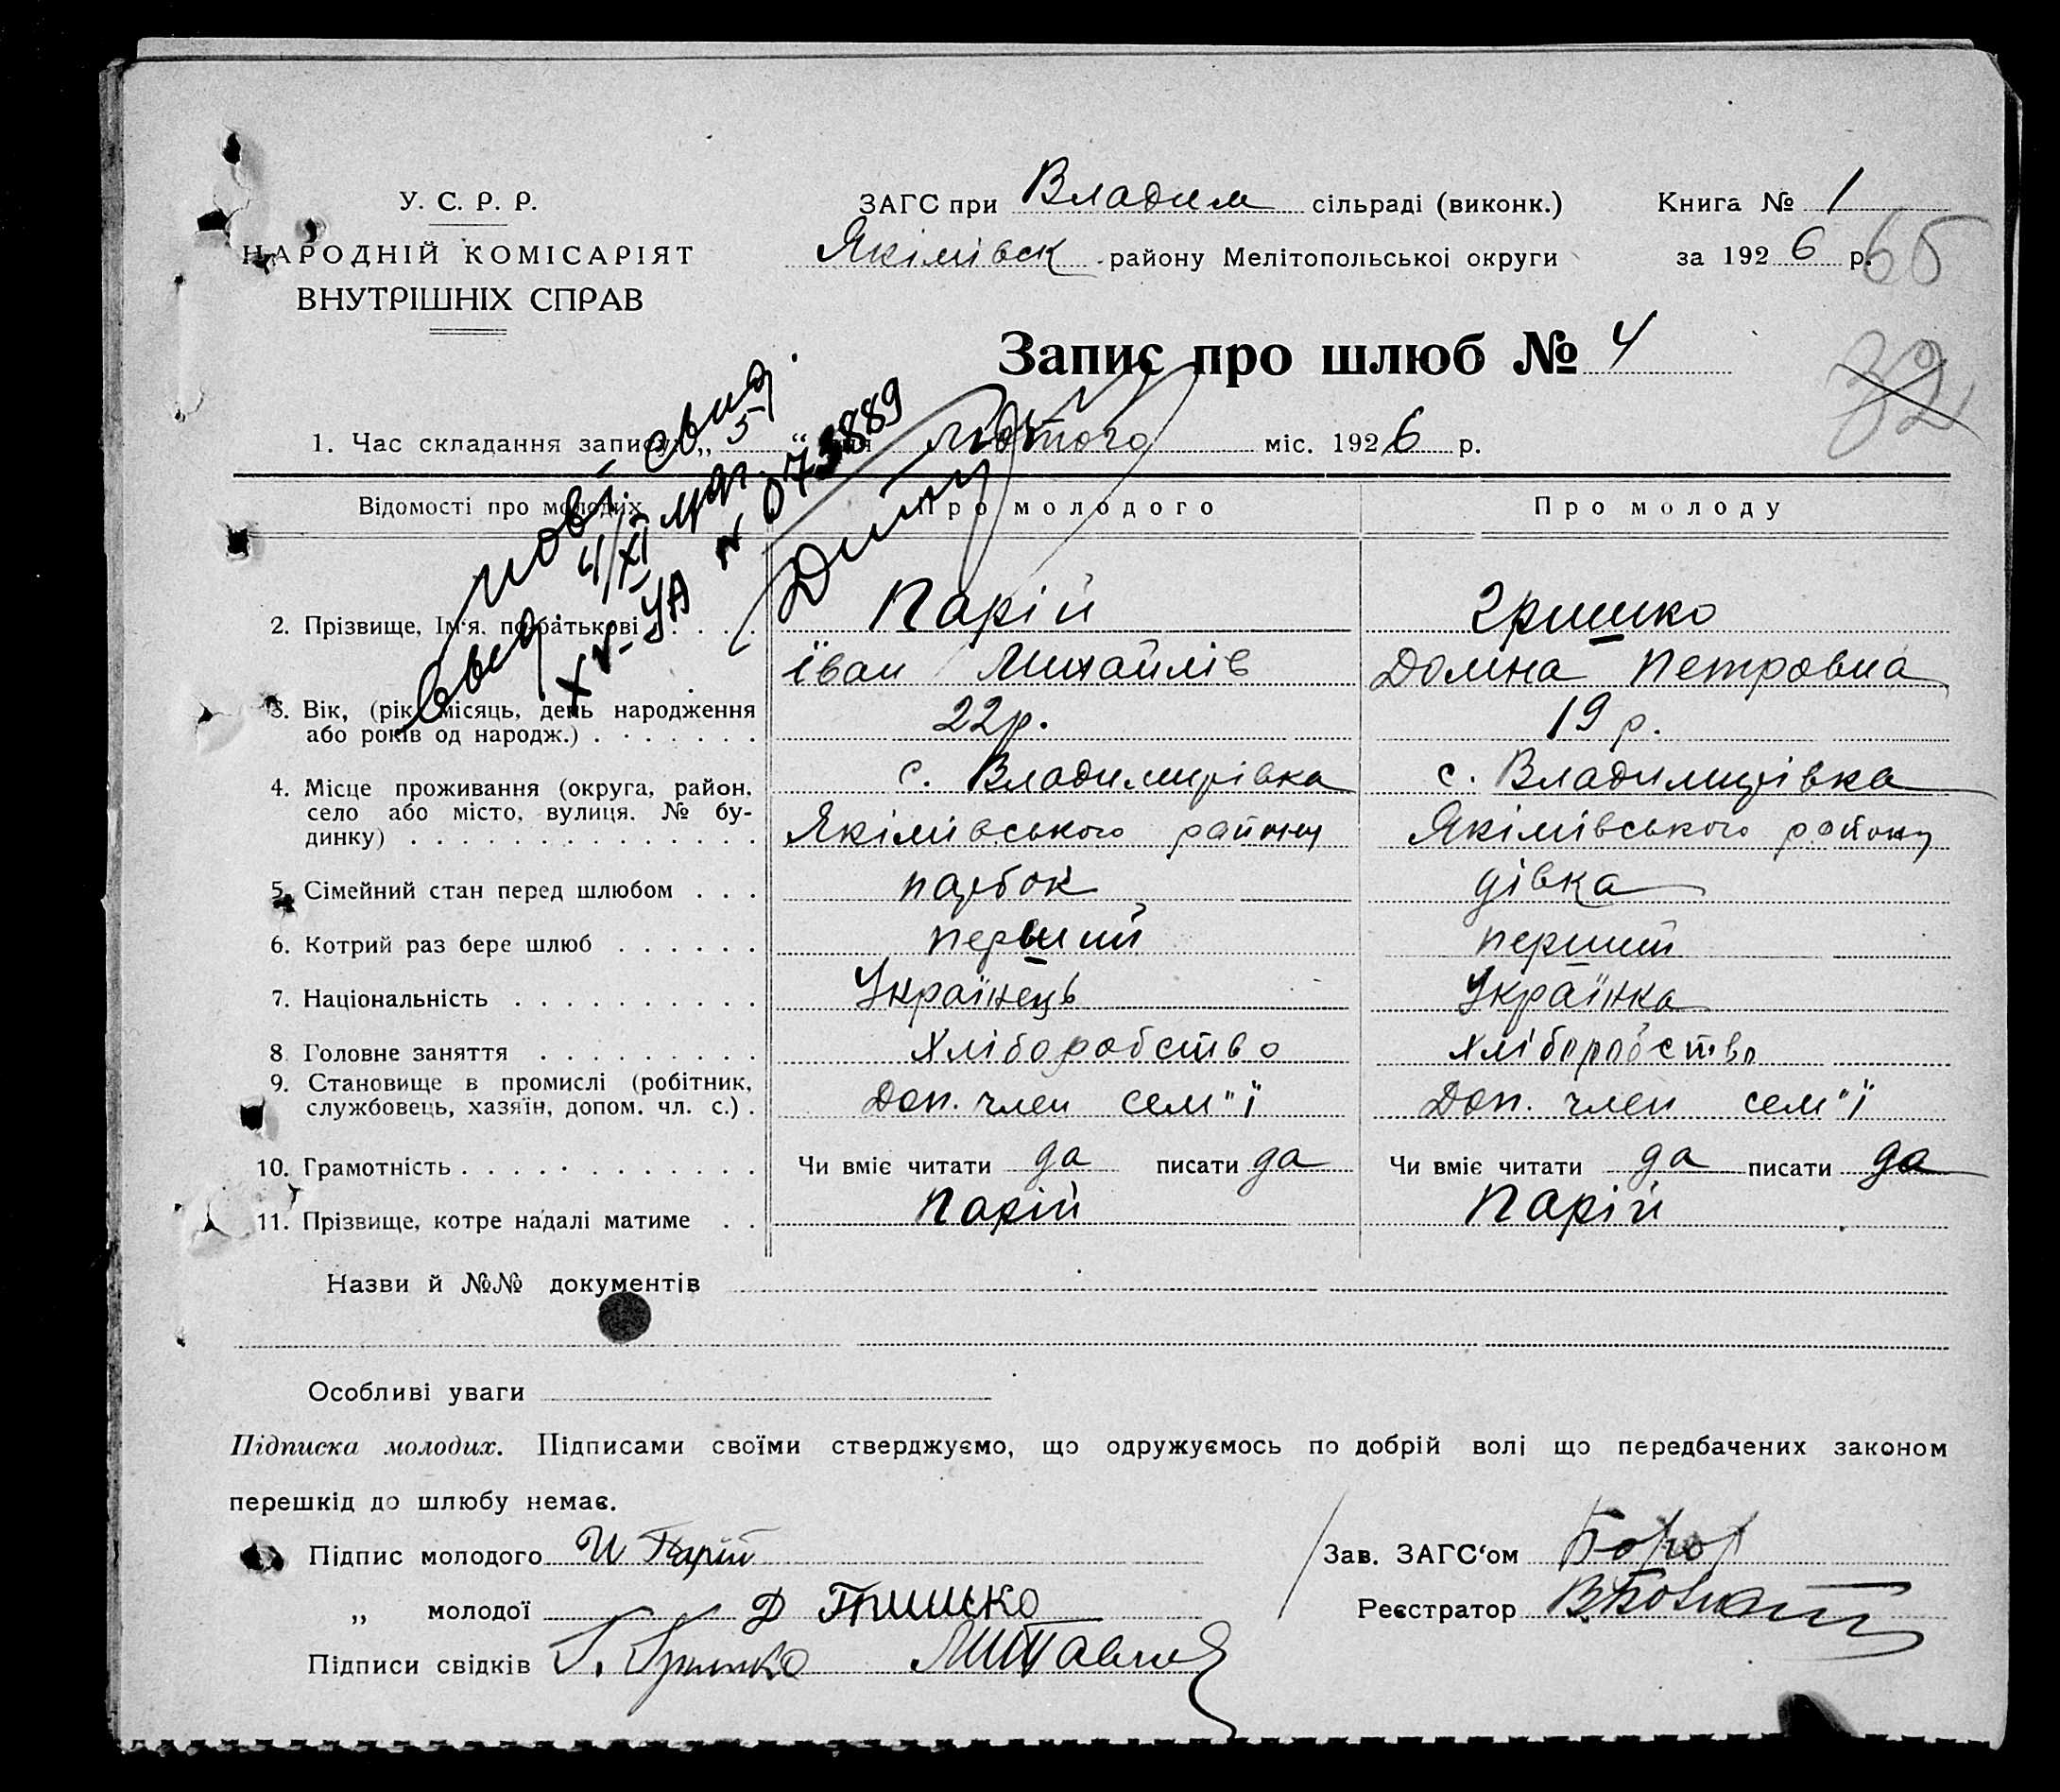 У. С. Р. Р.
НАРОДНІЙ КОМІСАРІЯТ
ВНУТРІШНІХ СПРАВ
ЗАГС при Владим сільраді (виконк.) Книга № 1
Якімівск району Мелітопольськоі округи за 1926 р.
65
Запис про шлюб № 4
32
1. Час складання запису „ 5 “ дня лютого міс. 1926 р.
повт. свид.
4/XI
Свид.
XV-УА № 073889
Відомості про молодих Про молодого Про молоду
2. Прізвище, Ім'я, по-батькові . . . . Парій Гришко
Іван Михайлів Домна Петровна
3. Вік, (рік, місяць, день народження 22р. 19 р.
або років од народж.) . . . . . . .
4. Місце проживання (округа, район, с. Владимирівка с. Владимирівка
село або місто, вулиця, № бу-
динку) . . . . . . . . . . . . . . Якімівського району Якімівського району
5. Сімейний стан перед шлюбом . . . парбок дівка
6. Котрий раз бере шлюб . . . . . . перший перший
7. Національність . . . . . . . . . . Українець Українка
8 Головне заняття . . . . . . . . . Хліборобство хліборобство
9. Становище в промислі (робітник,
службовець, хазяїн, допом. чл. с.) . Доп. член сем"ї Доп. член сем"ї
10. Грамотність . . . . . . . . . . . . Чи вміє читати да писати да Чи вміє читати да писати да
11. Прізвище, котре надалі матиме . . Парій Парій
Назви й №№ документів
Особливі уваги
Підписка молодих. Підписами своїми стверджуємо, що одружуємось по добрій волі що передбачених законом
перешкід до шлюбу немає.
Підпис молодого И Парій Зав. ЗАГС'ом
„ молодої Д Гришко Реєстратор
Підписи свідків Гришко